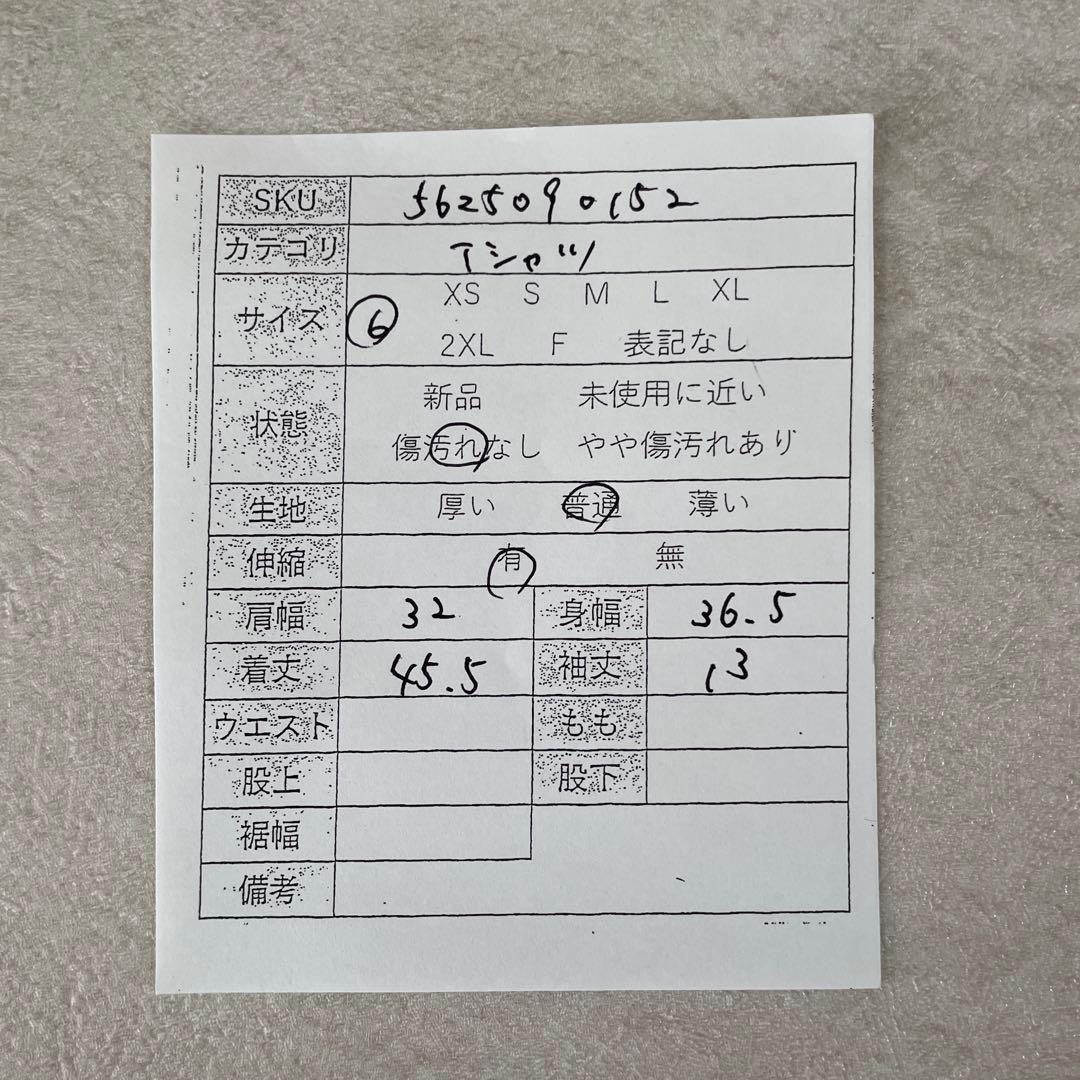 SKU 5625090152
カテゴリ Tシャツ
XS S M L XL
サイズ 6
2XL F 表記なし
新品 未使用に近い
状態
傷汚れなし やや傷汚れあり
生地 厚い 普通 薄い
伸縮 有 無
肩幅 32 身幅 36.5
着丈 45.5 袖丈 13
ウエスト もも
股上 股下
裾幅
備考